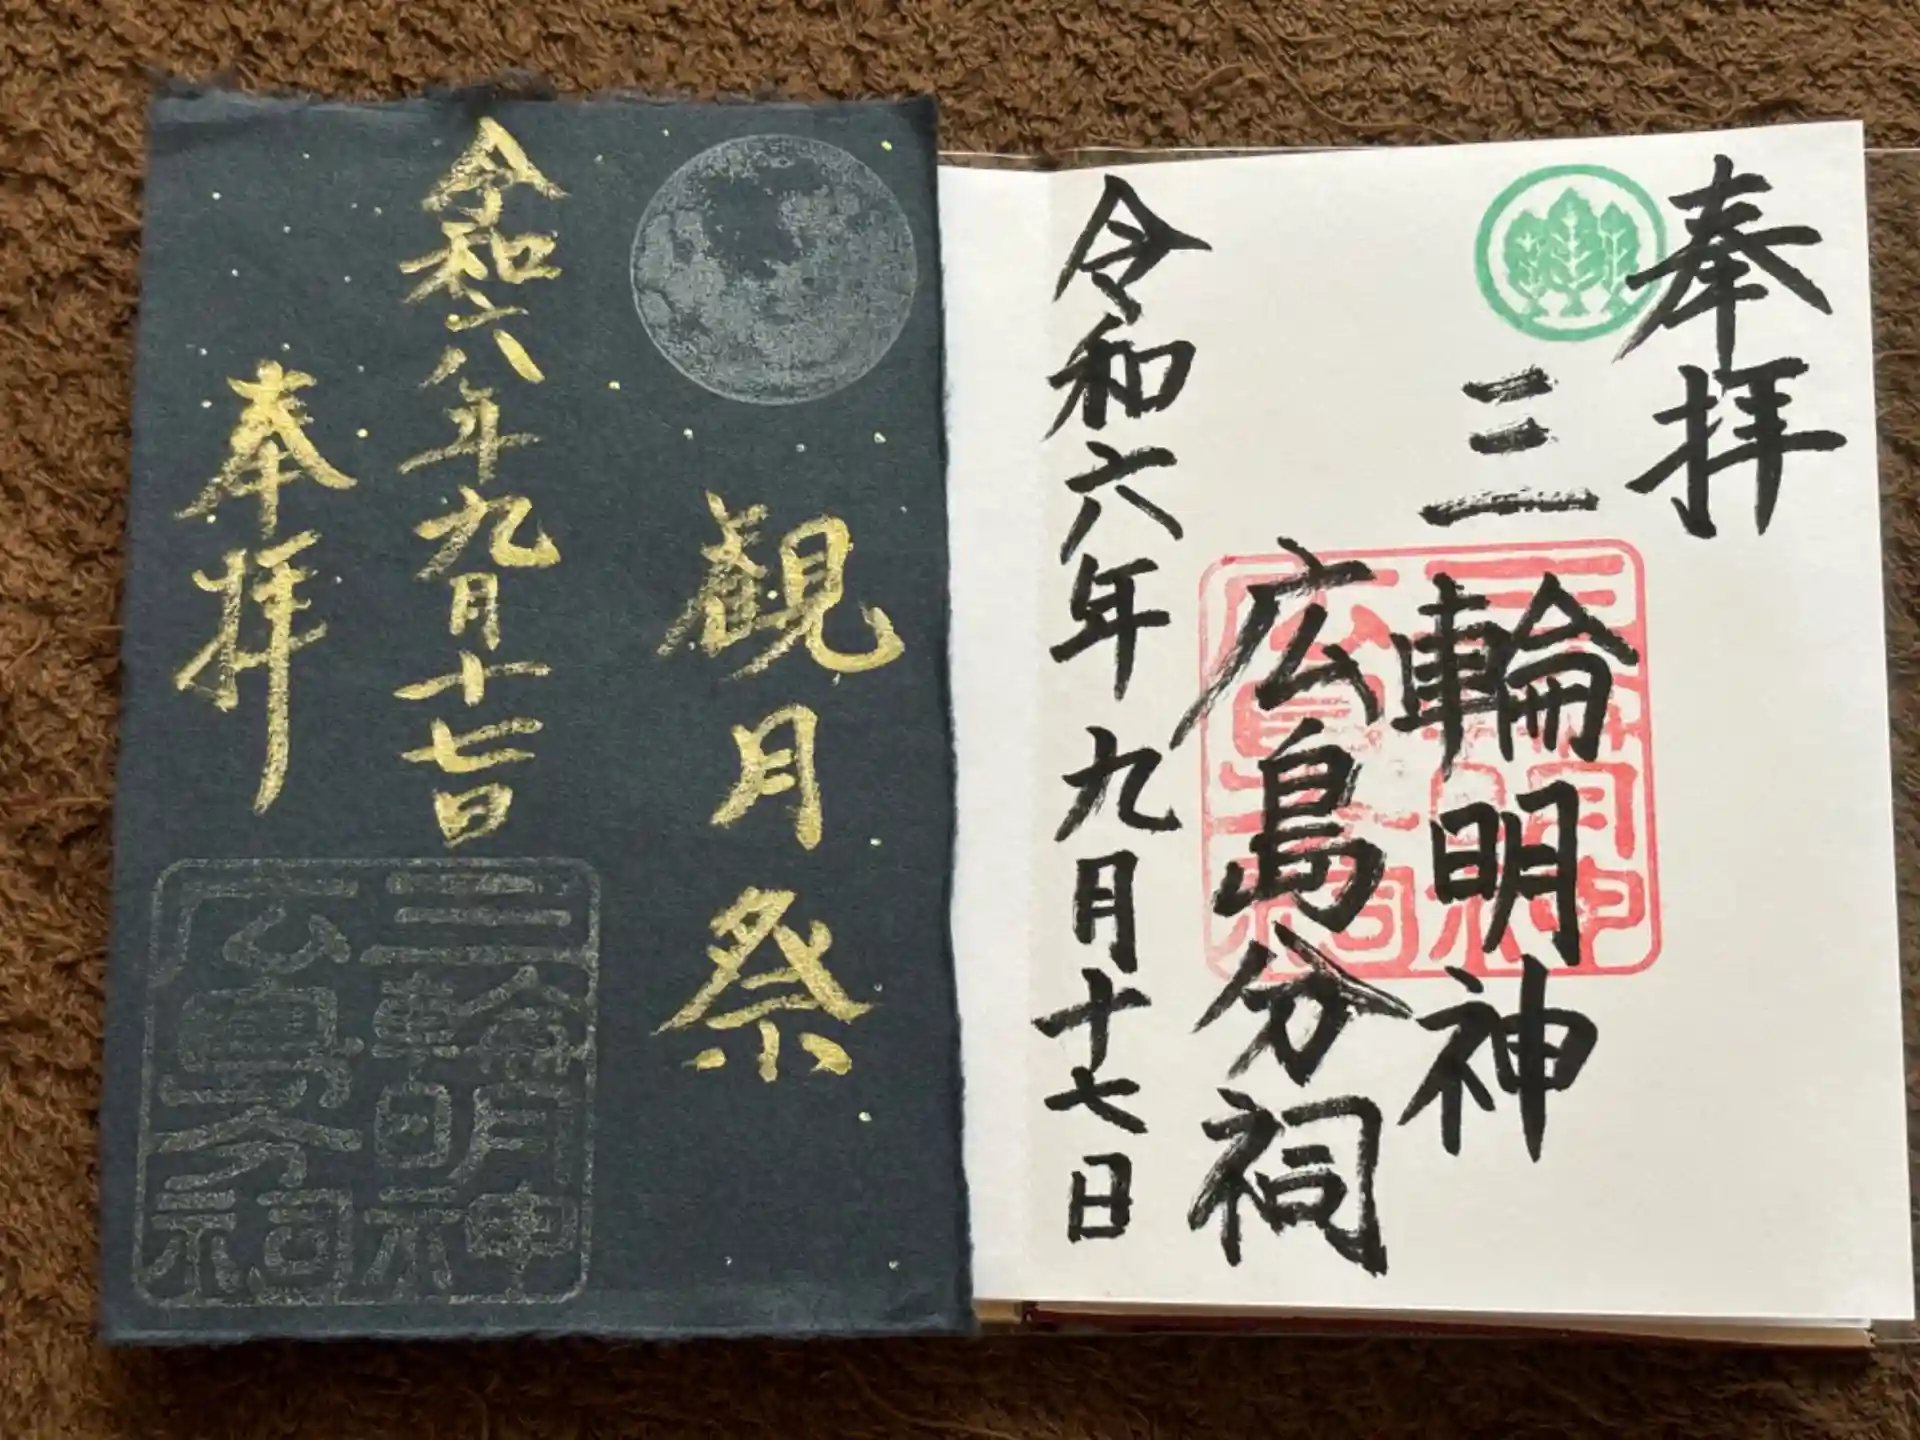 観月祭
令和六八年九月十七日
奉拝
三輪明神
広島分祠
奉拝
三輪明神
広島分祠
令和六年九月十七日
三輪明神
広島分祠